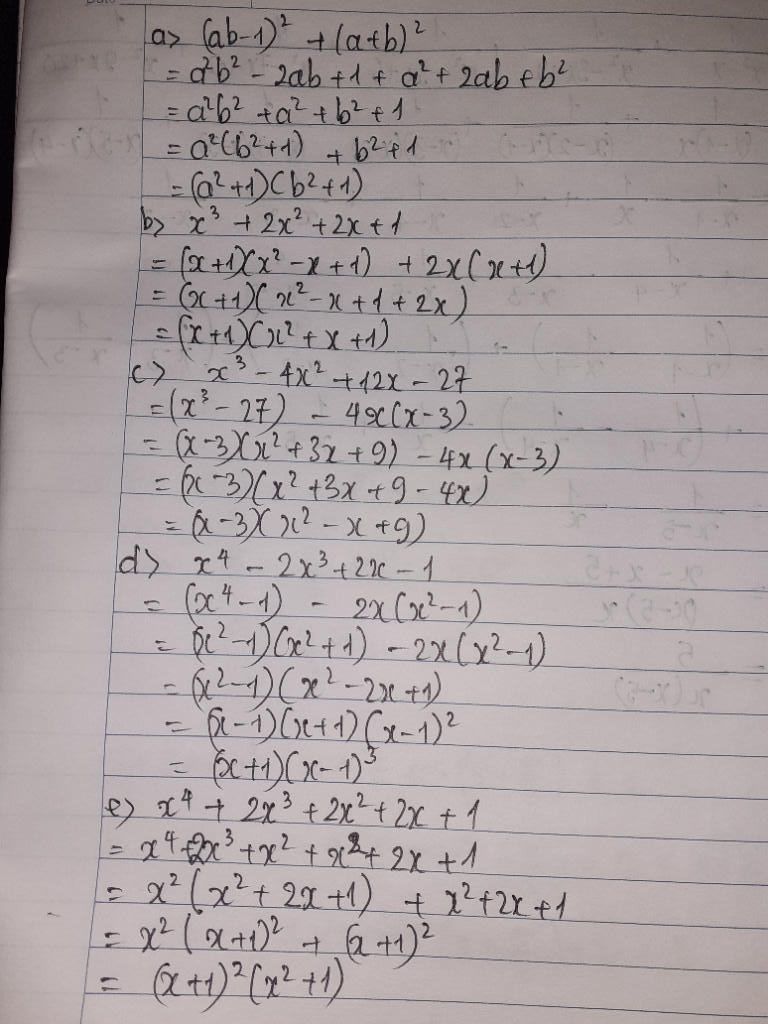 a> (ab-1)² + (a+b)²
= a²b² - 2ab + 1 + a² + 2ab + b²
= a²b² + a² + b² + 1
= a²(b²+1) + b²+1
= (a²+1)(b²+1)
b> x³ + 2x² + 2x + 1
= (x+1)(x² - x + 1) + 2x(x+1)
= (x+1)(x² - x + 1 + 2x)
= (x+1)(x² + x + 1)
c> x³ - 4x² + 12x - 27
= (x³ - 27) - 4x(x-3)
= (x-3)(x² + 3x + 9) - 4x(x-3)
= (x-3)(x² + 3x + 9 - 4x)
= (x-3)(x² - x + 9)
d> x⁴ - 2x³ + 2x - 1
= (x⁴-1) - 2x(x²-1)
= (x²-1)(x²+1) - 2x(x²-1)
= (x²-1)(x² - 2x + 1)
= (x-1)(x+1)(x-1)²
= (x+1)(x-1)³
e> x⁴ + 2x³ + 2x² + 2x + 1
= x⁴ + 2x³ + x² + x² + 2x + 1
= x²(x² + 2x + 1) + x² + 2x + 1
= x²(x+1)² + (x+1)²
= (x+1)²(x²+1)